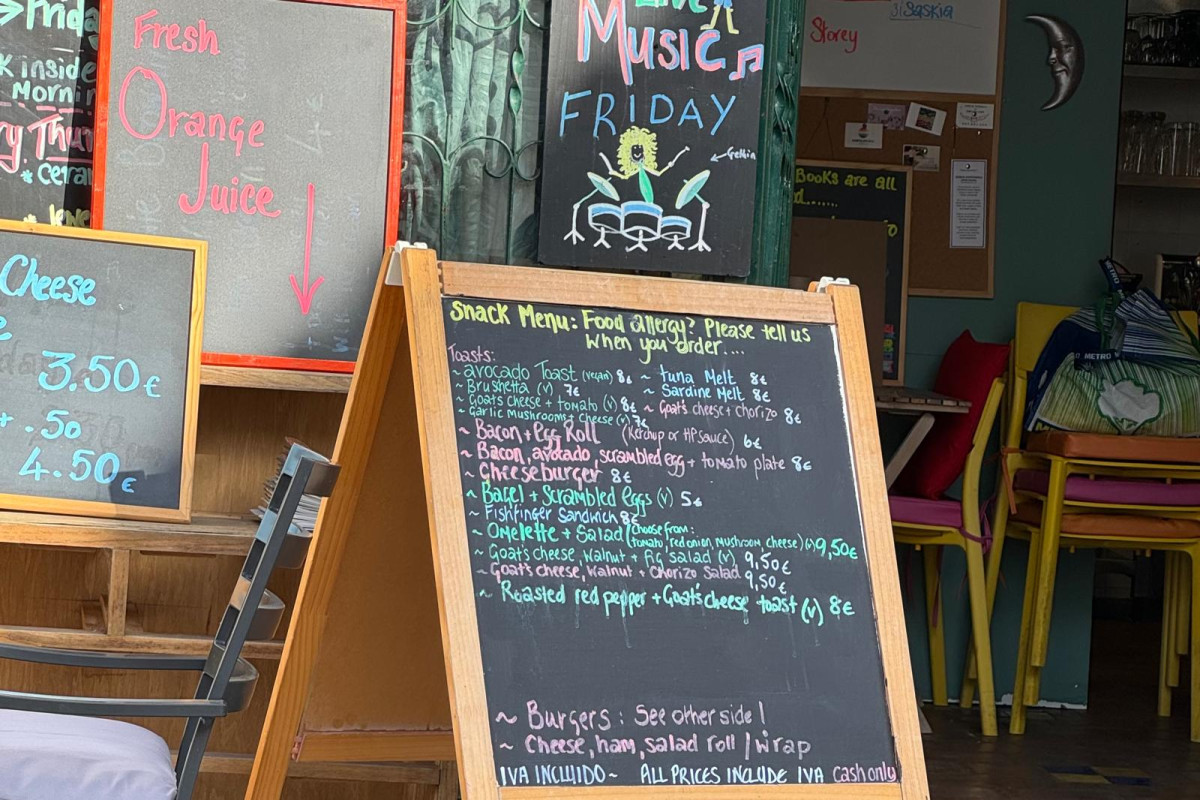 Friday
inside
Morn
Fresh
Orange
Juice
Live
Music
FRIDAY
Storey
Saskia
Books are all
Cheese
3.50€
.50
4.50€
Snack Menu: Food allergy? Please tell us
when you order....
Toasts:
~ avocado Toast (vegan) 8€
~ Brushetta (v) 7€
~ Goats cheese + tomato (v) 8€
~ Garlic Mushrooms + Cheese (v) 7€
~ tuna Melt 8€
~ Sardine Melt 8€
~ Goats cheese + chorizo 8€
~ Bacon + Egg Roll (Ketchup or HP sauce) 6€
~ Bacon, avocado, scrambled egg + tomato plate 8€
~ Cheeseburger 8€
~ Bagel + scrambled eggs (v) 5€
~ Fishfinger Sandwich 8€
~ Omelette + Salad (choose from:
tomato, red onion, mushroom cheese) (v) 9,50€
~ Goat's cheese, walnut + Fig salad (v) 9,50€
~ Goat's cheese, walnut + Chorizo Salad 9,50€
~ Roasted red pepper + Goats cheese toast (v) 8€
~ Burgers: See other side!
~ Cheese, ham, salad roll / wrap
IVA INCLUIDO ~ ALL PRICES INCLUDE IVA cash only
METRO